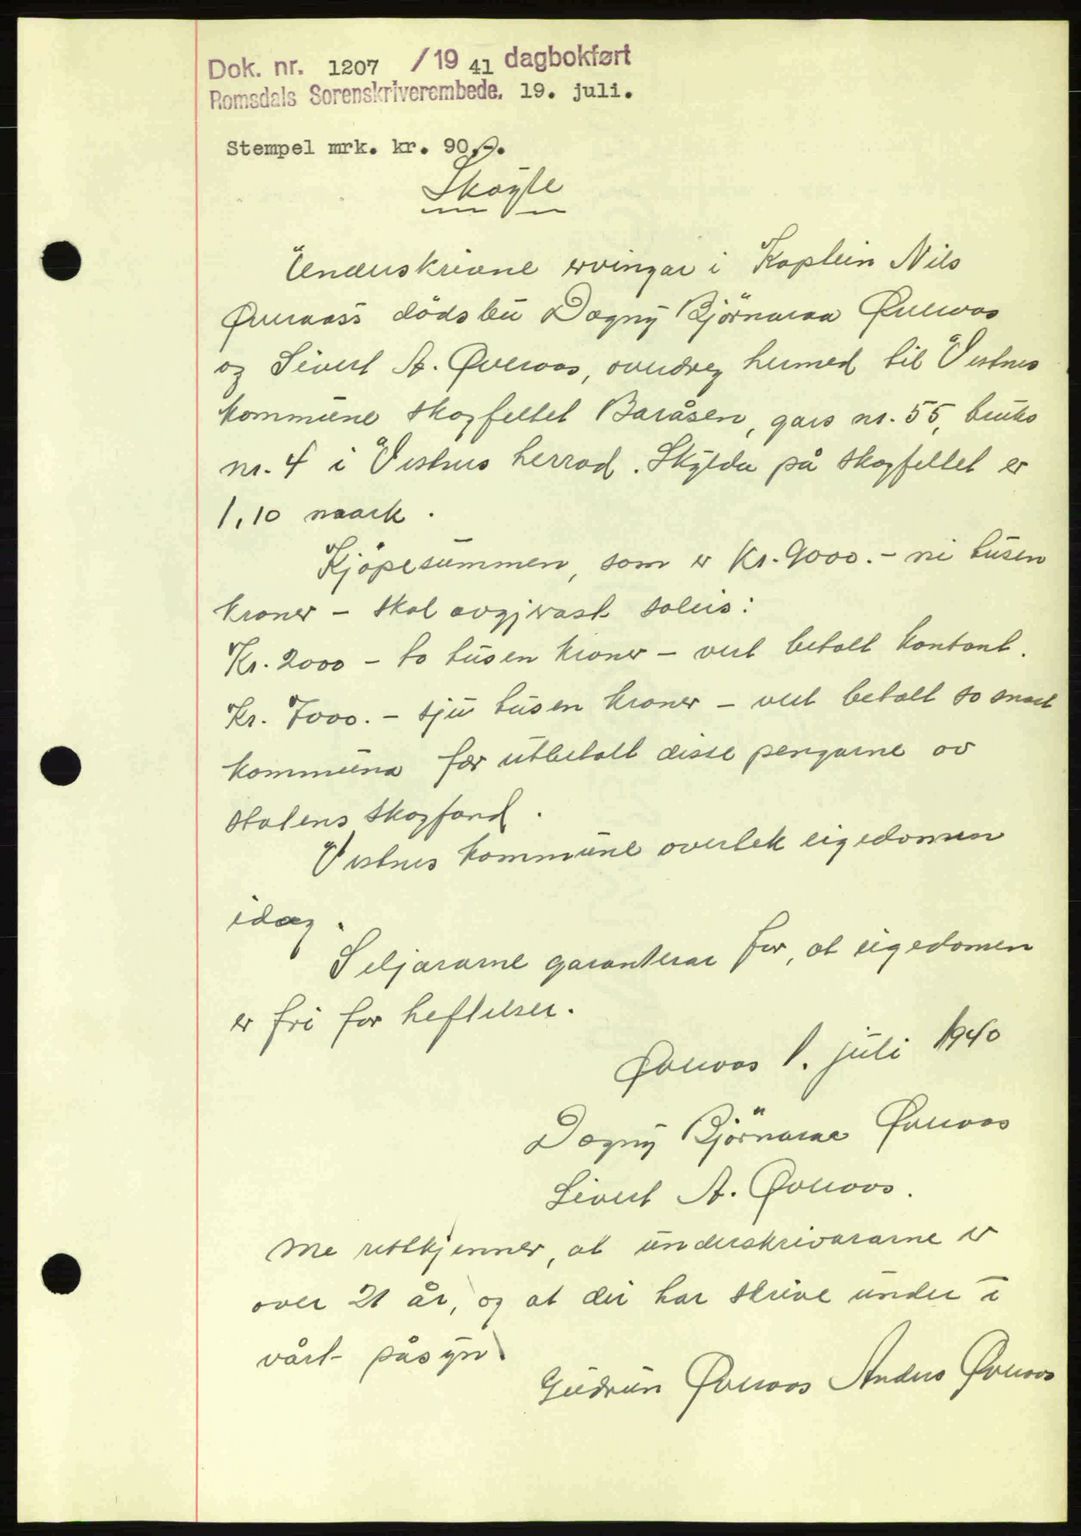 Dok. nr. 1207 /19 41 dagbokført
Romsdals Sorenskriverembede. 19. juli.
Stempel mrk. kr. 90.-.
Skøyte
Underskrivne ervingar i Kaptein Nils
Øveraas's dödsbu Dagny Björnaraa Øveraas
og Sivert A. Øveraas, overdreg hermed til Vestnes
kommune skogfeltet Baråsen, gars nr. 55, bruks
nr. 4 i Vestnes herrad. Skylda på skogfeltet er
1,10 mark.
Kjöpesummen, som er Kr. 9000.- ni tusen
kroner - skal avgjerast soleis:
Kr. 2000 - to tusen kroner - vert betalt kontant.
Kr. 7000.- sju tusen kroner - vert betalt so snart
kommuna fær utbetalt disse pengarne av
statens skogfond.
Vestnes kommune overtek eigedomen
idag.
Seljararne garanterar for, at eigedomen
er fri for heftelser.
Øveraas 1. juli 1940
Dagny Björnaraa Øveraas
Sivert A. Øveraas.
Me vitkjenner, at underskrivararne er
over 21 år, og at dei har skrive under i
vårt påsyn.
Gudrun Øveraas Anders Øveraas